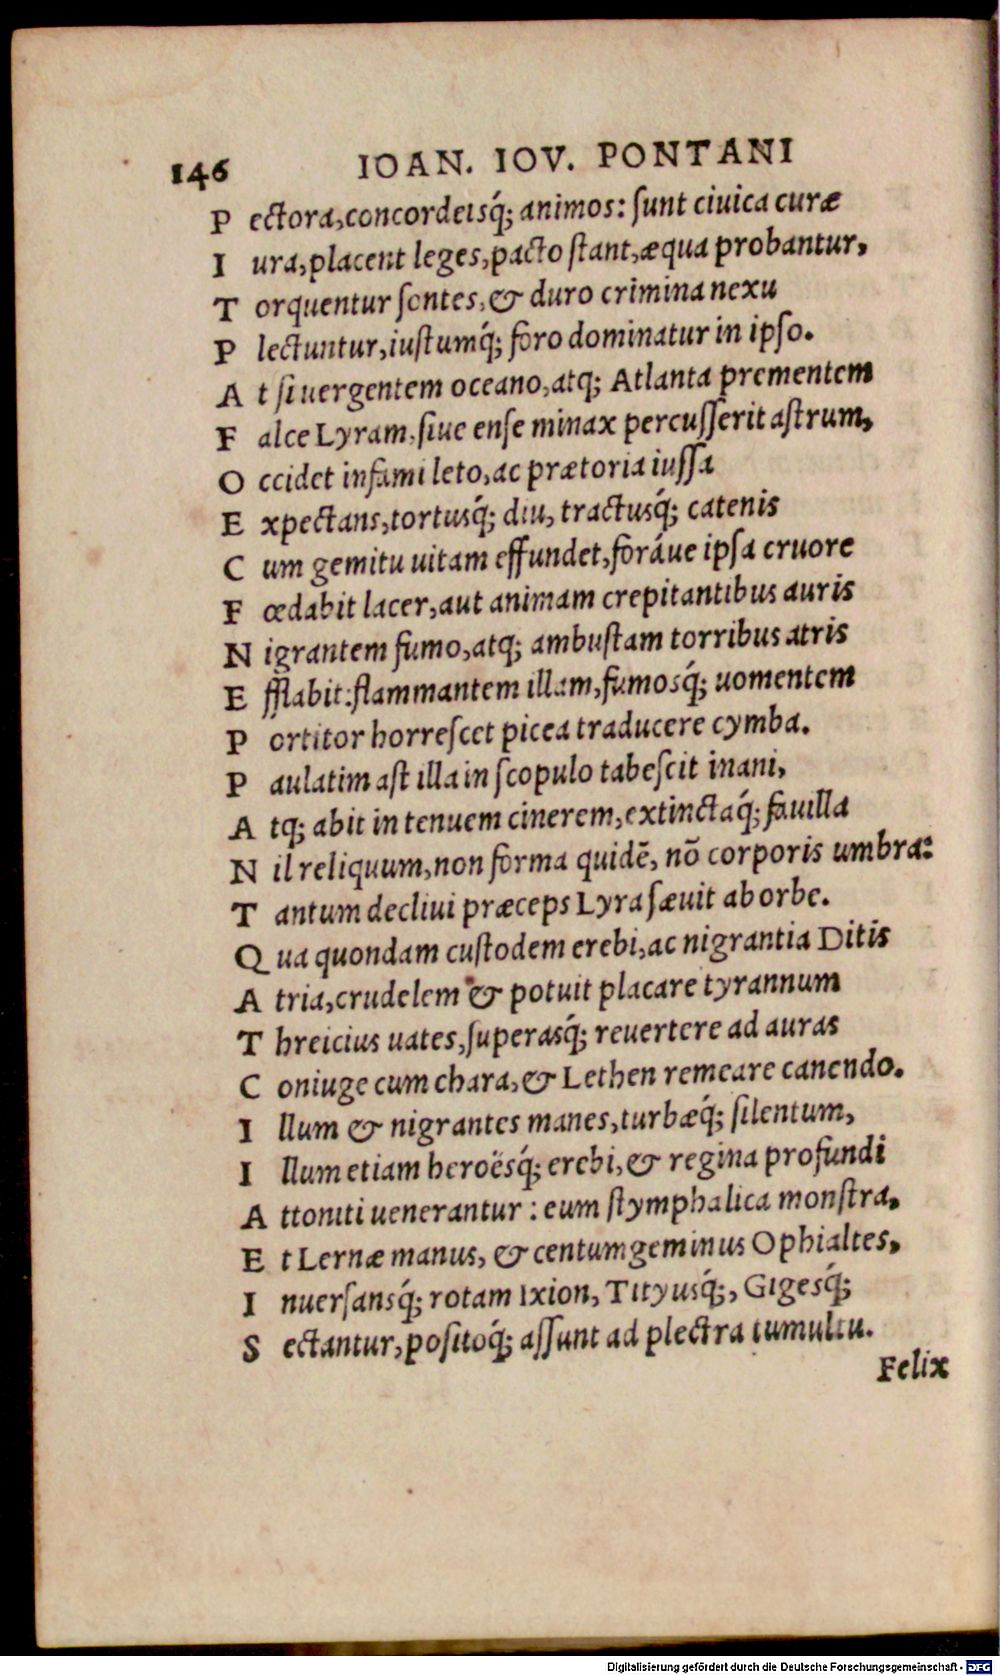 146 IOAN. IOV. PONTANI
P ectora, concordeisq́; animos: ſunt ciuica curæ
I ura, placent leges, pacto ſtant, æqua probantur,
T orquentur ſontes, & duro crimina nexu
P lectuntur, iuſtumq́; foro dominatur in ipſo.
A t ſi uergentem oceano, atq; Atlanta prementem
F alce Lyram, ſiue enſe minax percuſſerit aſtrum,
O ccidet infami leto, ac prætoria iuſſa
E xpectans, tortusq́; diu, tractusq́; catenis
C um gemitu uitam effundet, foráue ipſa cruore
F œdabit lacer, aut animam crepitantibus auris
N igrantem fumo, atq; ambuſtam torribus atris
E fflabit: flammantem illam, fumosq́; uomentem
P ortitor horreſcet picea traducere cymba.
P aulatim aſt illa in ſcopulo tabeſcit inani,
A tq; abit in tenuem cinerem, extinctaq́; fauilla
N il reliquum, non forma quidē, nō corporis umbra:
T antum decliui præceps Lyra ſæuit ab orbe.
Q ua quondam cuſtodem erebi, ac nigrantia Ditis
A tria, crudelem & potuit placare tyrannum
T hreicius uates, ſuperasq́; reuertere ad auras
C oniuge cum chara, & Lethen remeare canendo.
I llum & nigrantes manes, turbæq́; ſilentum,
I llum etiam heroësq́; erebi, & regina profundi
A ttoniti uenerantur: eum ſtymphalica monſtra,
E t Lernæ manus, & centumgeminus Ophialtes,
I nuerſansq́; rotam Ixion, Tityusq́;, Gigesq́;
S ectantur, poſitoq́; aſſunt ad plectra tumultu.
Felix
Digitalisierung gefördert durch die Deutsche Forschungsgemeinschaft - DFG